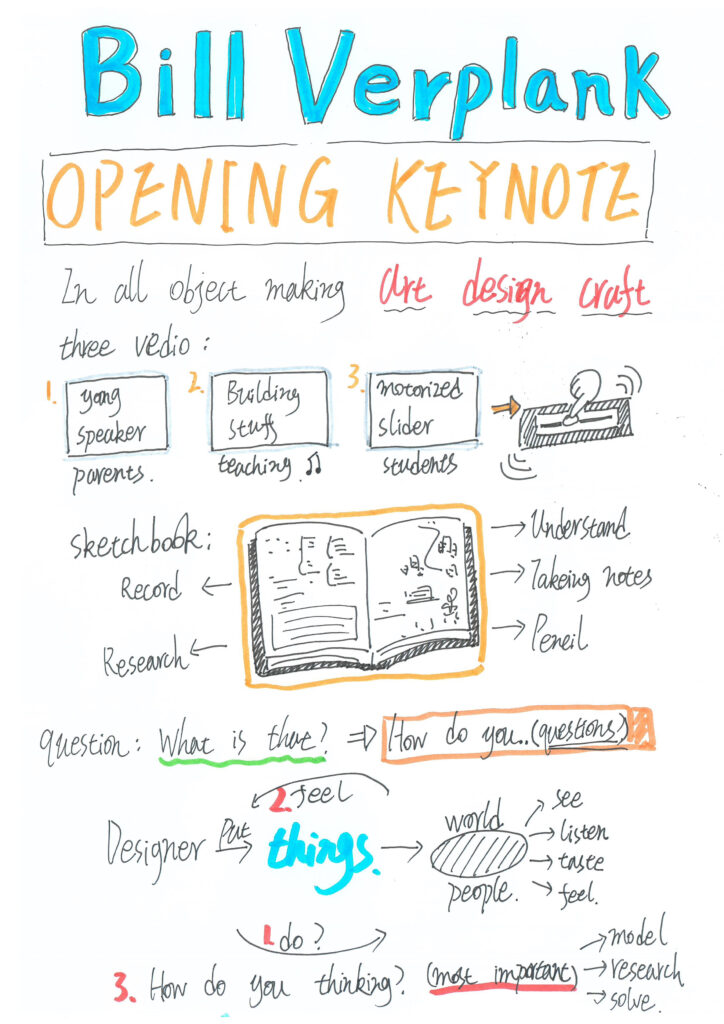 Bill Verplank
OPENING KEYNOTE
In all object making art design craft
three vedio:
1. yong speaker
parents.
2. Building stuff
teaching ♫
3. motorized slider
students
sketchbook:
Record
Research
Understand
Takeing notes
Pencil
question: What is that? ⇒ How do you..(questions)
2. feel
Designer Put things. world people.
see
listen
taste
feel.
1. do?
3. How do you thinking? (most important)
model
research
solve.